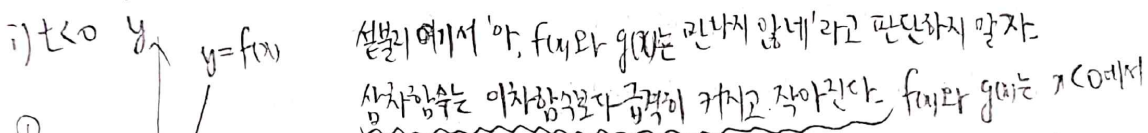 i) t<0 y y=f(x) 섣불리 여기서 '아, f(x)와 g(x)는 만나지 않네'라고 판단하지 말자.
삼차함수는 이차함수보다 급격히 커지고 작아진다. f(x)와 g(x)는 x<0에서
①